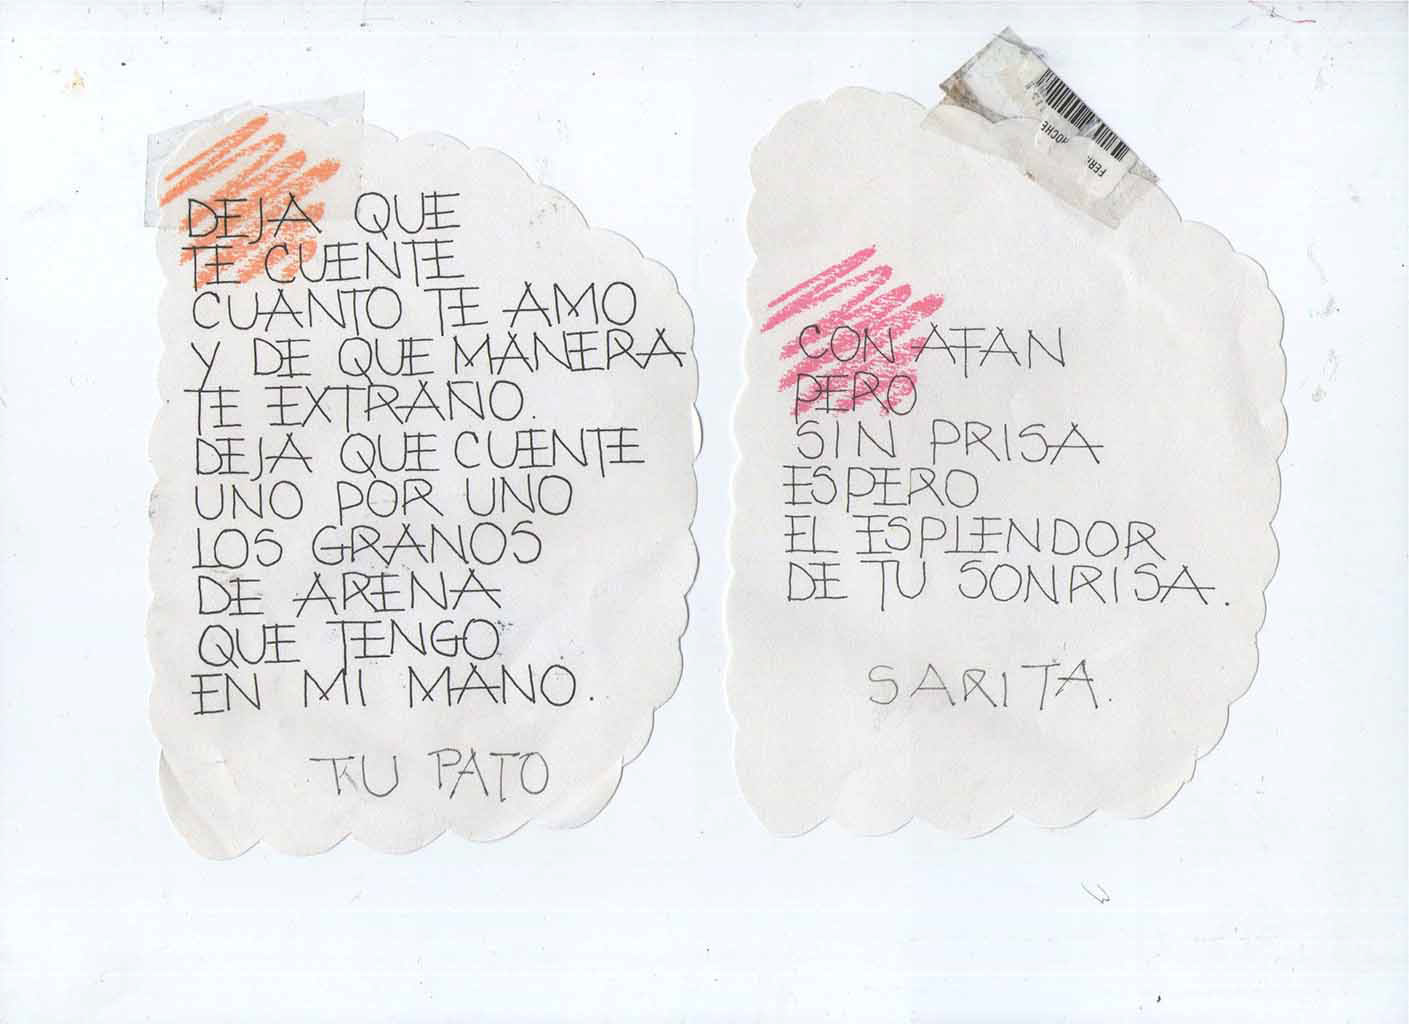 DEJA QUE
TE CUENTE
CUANTO TE AMO
Y DE QUE MANERA
TE EXTRAÑO.
DEJA QUE CUENTE
UNO POR UNO
LOS GRANOS
DE ARENA
QUE TENGO
EN MI MANO.
TU PATO
CON AFAN
PERO
SIN PRISA
ESPERO
EL ESPLENDOR
DE TU SONRISA.
SARITA.